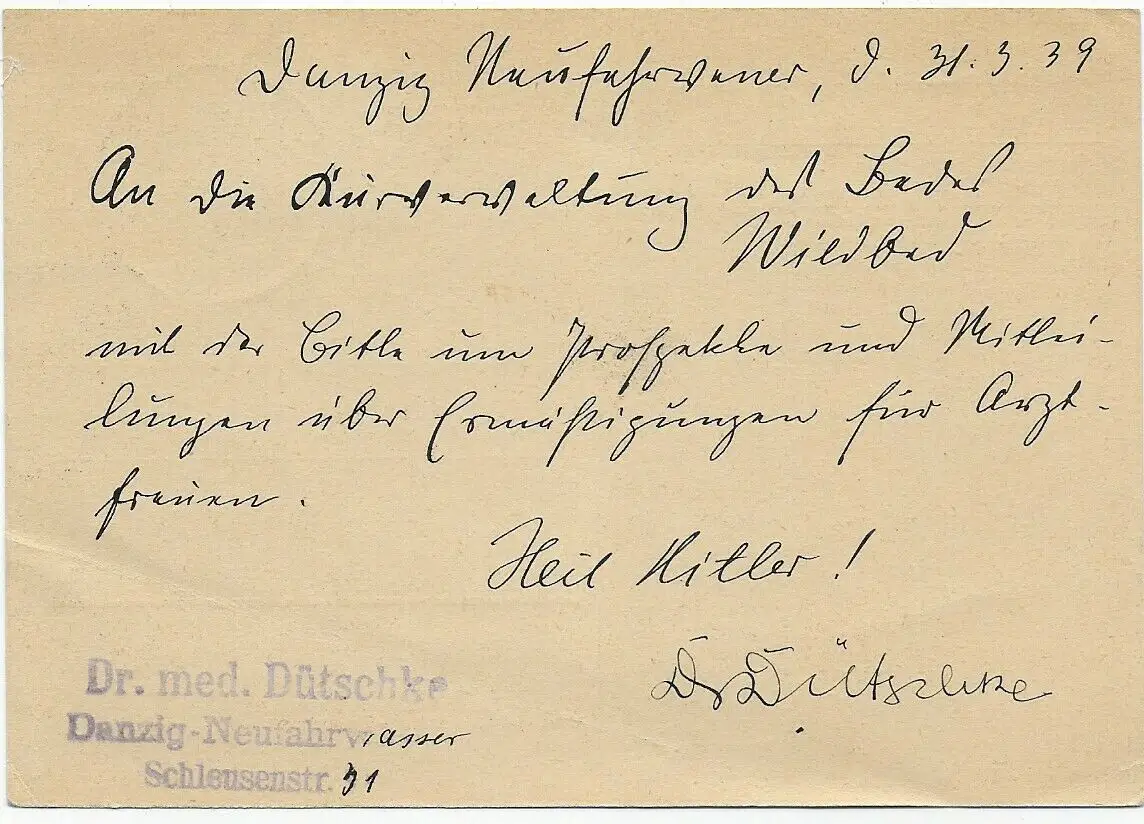 Danzig Neufahrwasser, d. 31.3.39
An die Kurverwaltung des Bades
Wildbad
mit der Bitte um Prospekte und Mittei-
lungen über Ermäßigungen für Arzt-
frauen.
Heil Hitler!
Dr Dütschke
Dr. med. Dütschke
Danzig-Neufahrwasser
Schleusenstr. 31